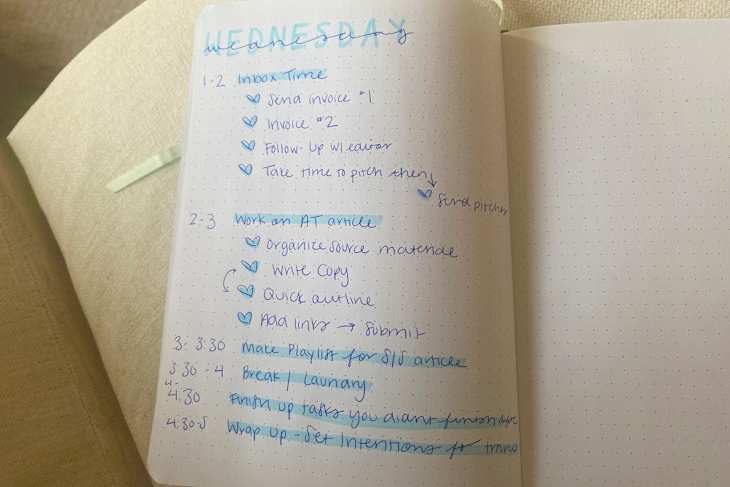 WEDNESDAY
wednesday
1-2 Inbox Time
Send invoice #1
Invoice #2
Follow-Up w/ editor
Take time to pitch then
Send pitches
2-3 Work on AT article
Organize source materials
Write Copy
Quick outline
Add links → Submit
3-3:30 Make Playlist for S/S article
3:30-4 Break / Laundry
4-4:30 Finish up tasks you didnt finish
4:30-5 Wrap up - Set Intentions for